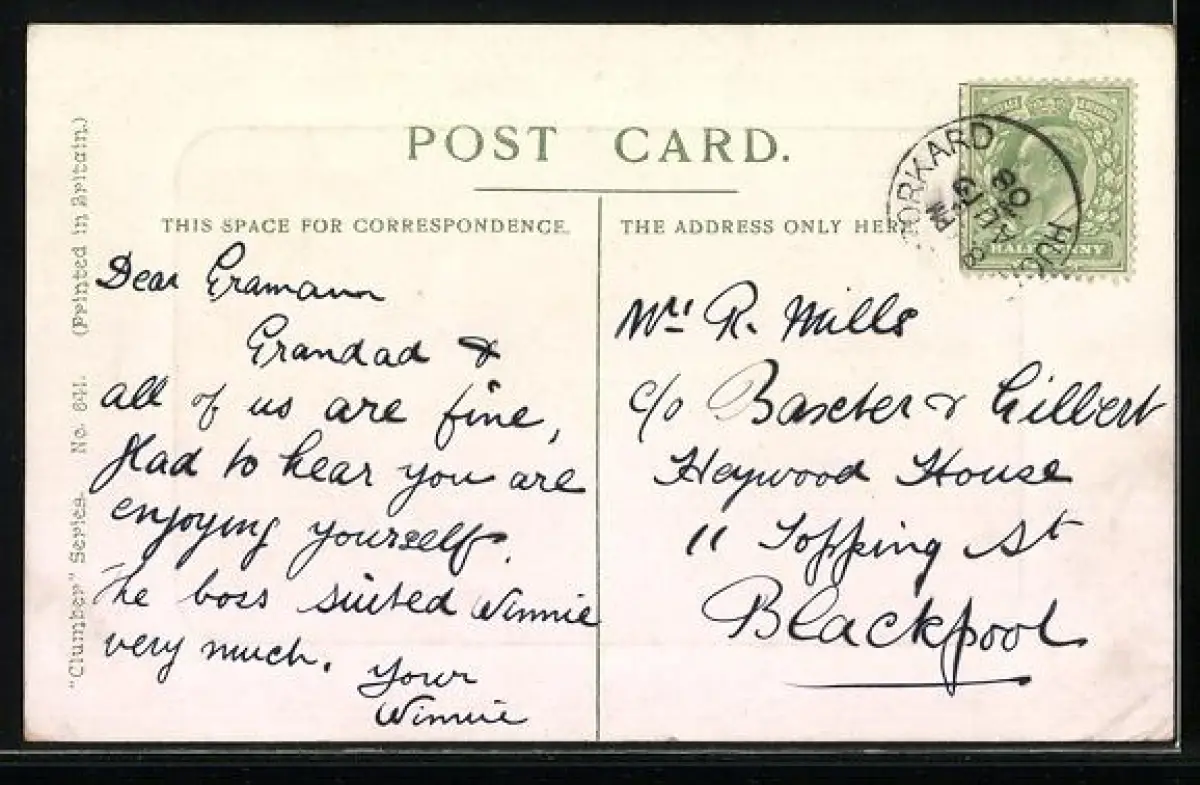 POST CARD.
THIS SPACE FOR CORRESPONDENCE.
THE ADDRESS ONLY HERE.
"Clumber" Series. No. 641. (Printed in Britain.)
Dear Gramann
Grandad &
all of us are fine,
Glad to hear you are
enjoying yourself.
The boss suited Winnie
very much.
Your
Winnie
Mrs R. Mills
c/o Baxter & Gilbert
Heywood House
11 Topping St
Blackpool
HALFPENNY
HUC
ORKARD
AU 13
08